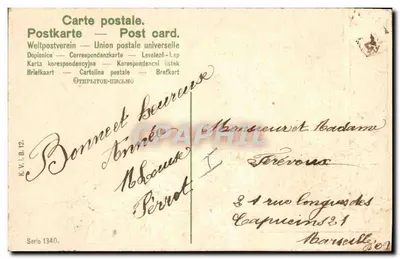 Carte postale.
Postkarte — Post card.
Weltpostverein — Union postale universelle
Dopisnice — Correspondenzkarte — Levelező-Lap
Karta korespondencyjna — Korespondenční lístek
Briefkaart — Cartolina postale — Brefkort
Открытое письмо
Bonne et heureuse
Année
M Louise
Perrot
Monsieur et Madame
21 rue Longue des
Capucins 21
Marseille
E. V. I. B. 17.
Serie 1340.